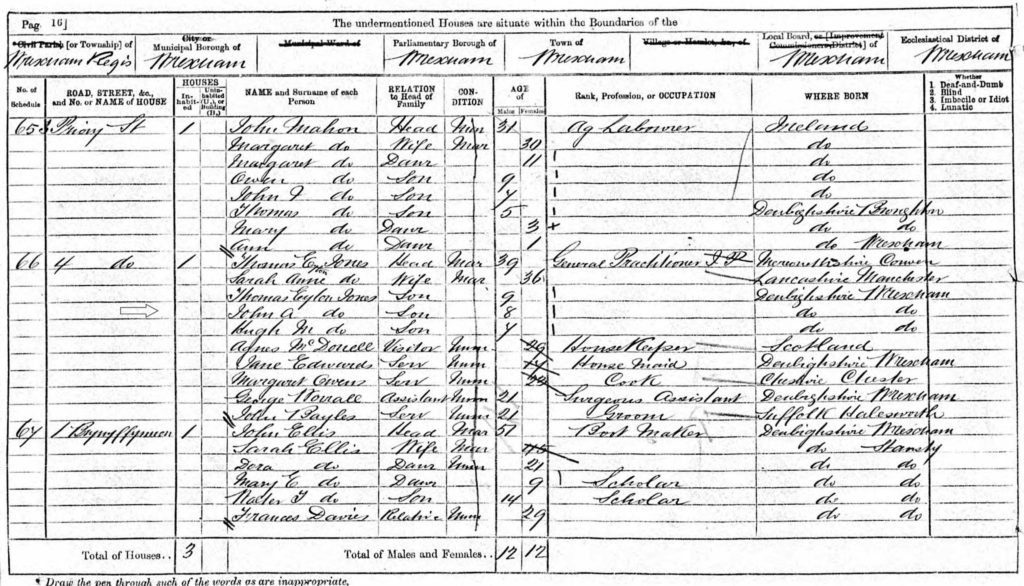 Pag 16]
The undermentioned Houses are situate within the Boundaries of the
Civil Parish [or Township] of City or Municipal Borough of Municipal Ward of Parliamentary Borough of Town of Village or Hamlet, &c., of Local Board, or [Improvement Commissioners District] of Ecclesiastical District of
Wrexham Regis Wrexham Wrexham Wrexham Wrexham Wrexham
No. of Schedule ROAD, STREET, &c., and No. or NAME of HOUSE HOUSES In-habit-ed Unin-habited (U.), or Building (B.) NAME and Surname of each Person RELATION to Head of Family CON-DITION AGE of Males Females Rank, Profession, or OCCUPATION WHERE BORN Whether 1. Deaf-and-Dumb 2. Blind 3. Imbecile or Idiot 4. Lunatic
65 Priory St 1 John Mahon Head 31 Ag Labourer Ireland
Margaret do Wife Mar 30 do
Margaret do Daur 11 do
Owen do Son 9 do
John do Son 7 do
Thomas do Son 5 Denbighshire Broughton
Mary do Daur 3 do do
Ann do Daur 1 do Wrexham
66 4 do 1 Thomas E Jones Head Mar 39 General Practitioner Corwen
Sarah Anne do Wife Mar 36 Lancashire Manchester
Thomas Eyton Jones Son 9 Denbighshire Wrexham
John A. do Son 8 do do
Hugh M do Son 7 do do
Agnes McDonell Visitor Unm 29 House Keeper Scotland
Jane Edwards Serv Unm House Maid Denbighshire Wrexham
Margaret Owens Serv Unm Cook Cheshire Chester
George Worrall Assistant Unm 21 Surgeons Assistant Denbighshire Wrexham
John Serv Unm 21 Groom Suffolk Halesworth
67 1 Brynyffynnon 1 John Ellis Head Mar 57 Denbighshire Wrexham
Sarah Ellis Wife Mar 45 do Stansty
Dora do Daur Unm 21 do do
Mary E do Daur 9 Scholar do do
do Son 14 Scholar do do
Frances Davies Relative Unm 29 do do
Total of Houses.. 3 Total of Males and Females.. 12 12
* Draw the pen through such of the words as are inappropriate.